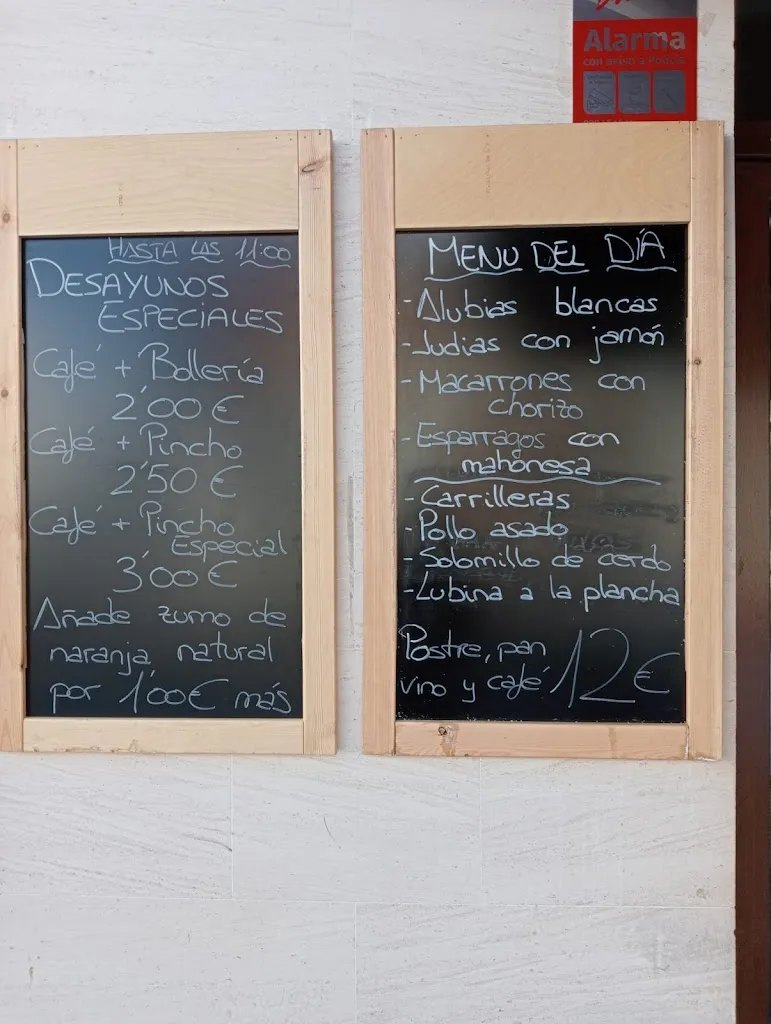 Alarma
con aviso a Policía
HASTA LAS 11:00
DESAYUNOS
ESPECIALES
Café + Bollería
2'00 €
Café + Pincho
2'50 €
Café + Pincho
Especial
3'00 €
Añade zumo de
naranja natural
por 1'00€ más
MENU DEL DÍA
- Alubias blancas
- Judias con jamón
- Macarrones con
chorizo
- Esparragos con
mahonesa
- Carrilleras
- Pollo asado
- Solomillo de cerdo
- Lubina a la plancha
Postre, pan
vino y café 12€